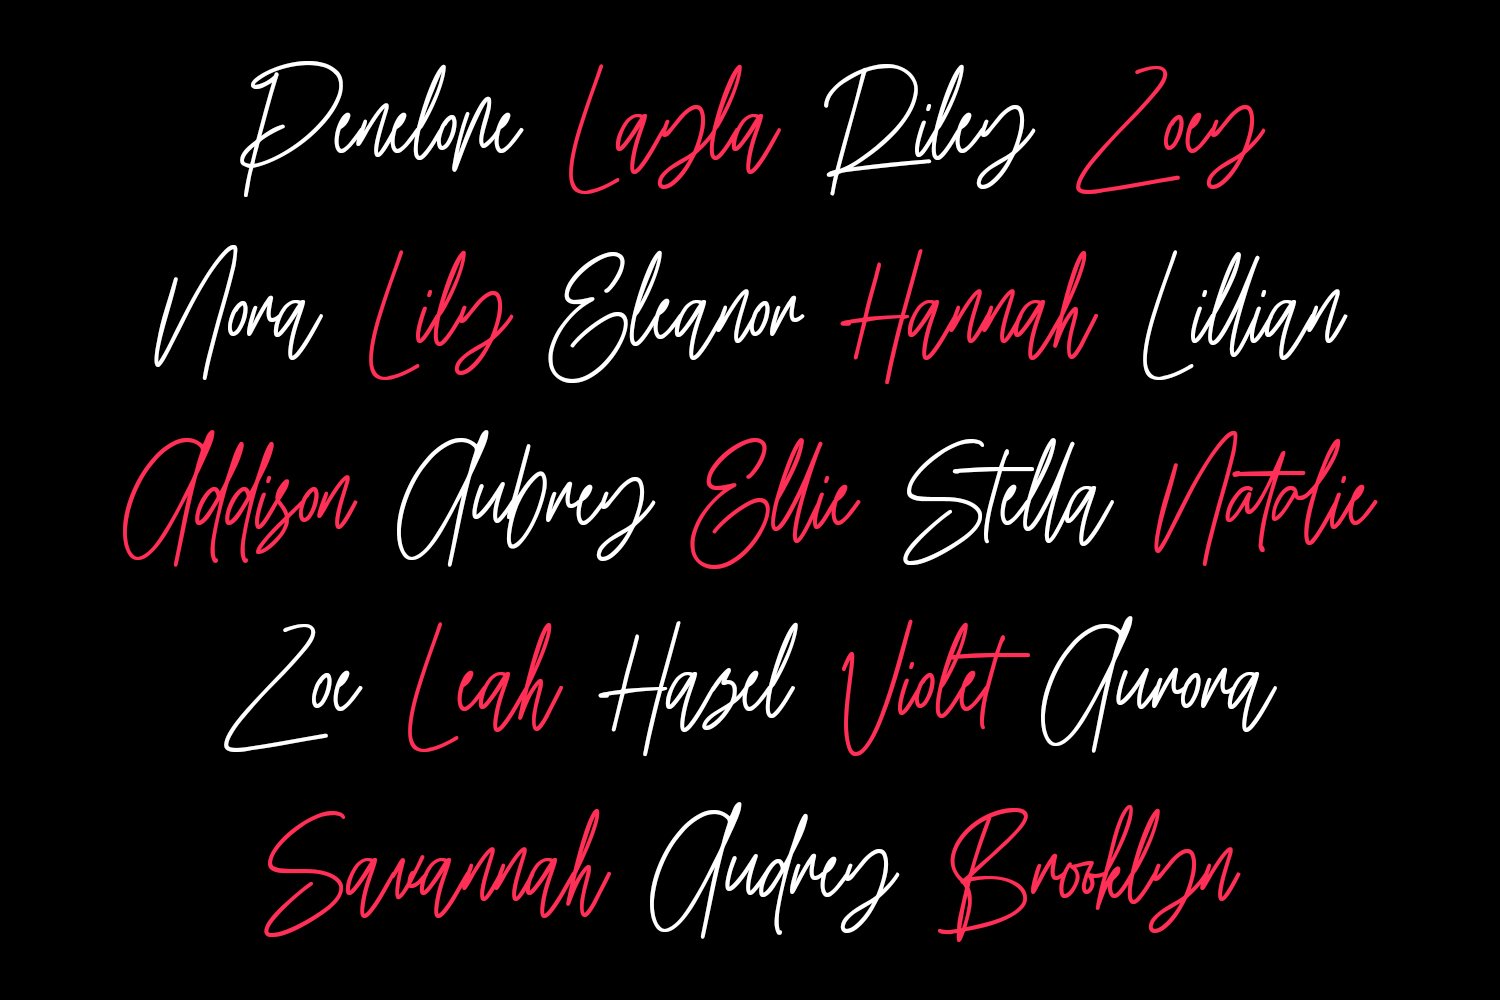 Penelope Layla Riley Zoey
Nora Lily Eleanor Hannah Lillian
Addison Aubrey Ellie Stella Natalie
Zoe Leah Hazel Violet Aurora
Savannah Audrey Brooklyn